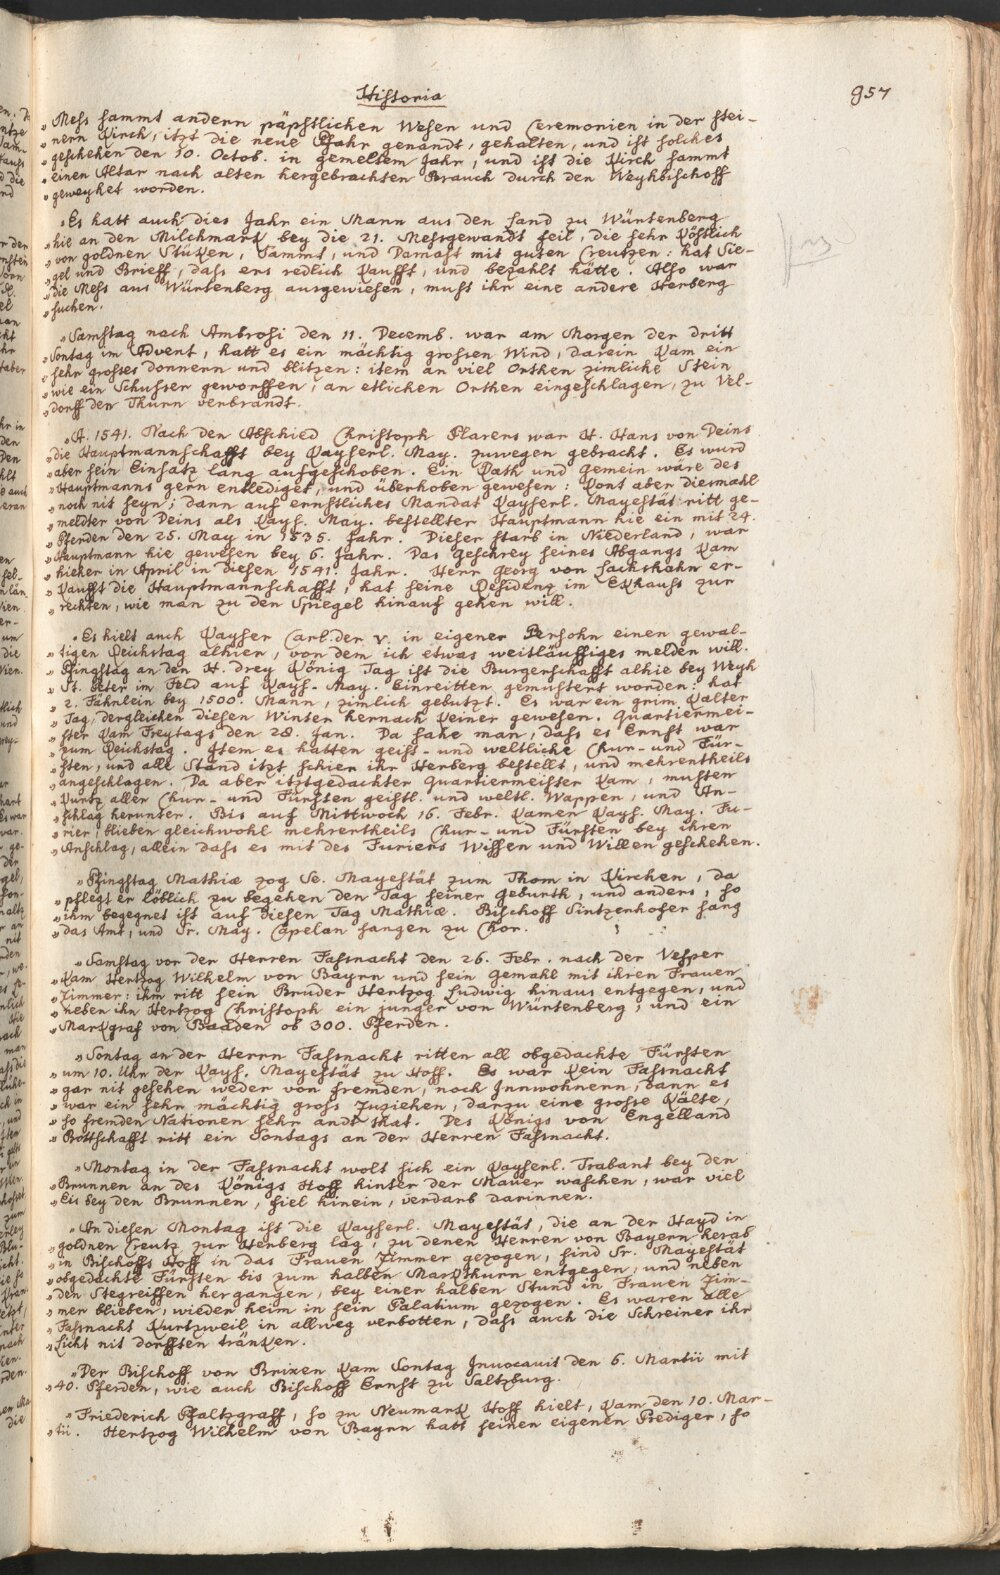 Historia
957
„Mess sammt andern päpstlichen Wesen und Ceremonien in der stei-
„nern Kirch, itzt die neue Pfahr genandt, gehalten, und ist solches
„geschehen den 10. Octob. in gemeltem Jahr, und ist die Kirch sammt
„einen Altar nach alten hergebrachten Brauch durch den Weyhbischoff
„geweyhet worden.
„Es hatt auch dies Jahr ein Mann aus den Land zu Würtenberg
„hie an den Milchmark bey die 21. Messgewandt feil, die sehr köstlich
„von goldnen Stuken, Sammt, und Damast mit guten Creutzen: hat Sie-
„gel und Brieff, dass ers redlich kaufft, und bezahlt hätte. Also war
„die Mess aus Würtenberg ausgewiesen, musst ihr eine andere Herberg
„suchen.
„Samstag nach Ambrosi den 11. Decemb. war am Morgen der dritt
„Sontag im Advent, hatt es ein mächtig grossen Wind, darein kam ein
„sehr grosses donnern und blitzen: item an viel Orthen zimliche Stein
„wie ein Schusser geworffen, an etlichen Orthen eingeschlagen, zu Vel-
„dorff den Thurn verbrandt.
„A. 1541. Nach den Abschied Christoph Plarens war H. Hans von Deins
„die Hauptmannschafft bey Kayserl. May. zuwegen gebracht. Es wurd
„aber sein Einsatz lang aufgeschoben. Ein Rath und Gemein wäre des
„Hauptmanns gern entlediget, und überhoben gewesen: kont aber diesmahl
„noch nit seyn, dann auf ernstliches Mandat Kayserl. Mayestät ritt ge-
„meldter von Deins als Kays. May. bestellter Hauptmann hie ein mit 24.
„Pferden den 25. May in 1535. Jahr. Dieser starb in Niederland, war
„Hauptmann hie gewesen bey 6. Jahr. Das Geschrey seines Abgangs kam
„hieher in April in diesen 1541. Jahr. Herr Georg von er-
„kaufft die Hauptmannschafft, hat seine Residenz im Ekhauss zur
„rechten, wie man zu den Spiegel hinauf gehen will.
„Es hielt auch Kayser Carl der V. in eigener Persohn einen gewal-
„tigen Reichstag alhier, von dem ich etwas weitläuffiges melden will.
„Pfingstag an den H. drey König Tag ist die Burgerschafft alhie bey Weyh
„St. Peter im Feld auf Kays. May. Einreitten gemustert worden: hat
„2. Fähnlein bey 1500. Mann, zimlich gebutzt. Es war ein grim kalter
„Tag, dergleichen diesen Winter hernach keiner gewesen. Quartiermei-
„ster kam Freytags den 28. Jan. Da sahe man, dass es Ernst war
„zum Reichstag. Item es hatten geist- und weltliche Chur- und Für-
„sten, und alle Ständ itzt schier ihr Herberg bestellt, und mehrentheils
„angeschlagen. Da aber itztgedachter Quartiermeister kam, musten
„kurtz aller Chur- und Fürsten geistl. und weltl. Wappen, und An-
„schlag herunter. Bis auf Mittwoch 16. Febr. kamen Kays. May. Fu-
„rier, blieben gleichwohl mehrertheils Chur- und Fürsten bey ihren
„Anschlag, allein dass es mit des Furiers Wissen und Willen geschehen.
„Pfingstag Mathiæ zog Se. Mayestät zum Thom in Kirchen, da
„pflegt er löblich zu begehen den Tag seiner Geburth, und anders, so
„ihm begegnet ist auf diesen Tag Mathiæ. Bischoff Sintzenhofer sang
„das Amt, und Sr. May. Capelan sangen zu Chor.
„Samstag vor der Herren Fassnacht den 26. Febr. nach der Vesper
„kam Hertzog Wilhelm von Bayrn und sein Gemahl mit ihren Frauen
„Zimmer: ihm ritt sein Bruder Hertzog Ludwig hinaus entgegen, und
„neben ihn Hertzog Christoph ein junger von Würtenberg, und ein
„Markgraf von Baaden ob 300. Pferden.
„Sontag an der Herrn Fassnacht ritten all obgedachte Fürsten
„um 10. Uhr der Kays. Mayestät zu Hoff. Es war kein Fassnacht
„gar nit gesehen weder von fremden, noch Innwohnern, dann es
„war ein sehr mächtig gross Zuziehen, darzu eine grosse Kälte,
„so fremden Nationen sehr andt that. Des Königs von Engelland
„Bottschafft ritt ein Sontags an der Herren Fassnacht.
„Montag in der Fassnacht wolt sich ein Kayserl. Trabant bey den
„Brunnen an des Königs Hoff hinter der Mauer waschen, war viel
„Eis bey den Brunnen, fiel hinein, verdarb darinnen.
„An diesen Montag ist die Kayserl. Mayestät, die an der Hayd in
„goldnen Creutz zur Herberg lag, zu denen Herren von Bayern herab
„in Bischoffs Hoff in das Frauen Zimmer gezogen, sind Sr. Mayestät
„obgedachte Fürsten bis zum halben Markthurn entgegen, und neben
„den Stegreiffen hergangen, bey einer halben Stund in Frauen Zim-
„mer blieben, wieder heim in sein Palatium gezogen. Es waren alle
„Fassnacht Kurtzweil in allweg verbotten, dass auch die Schreiner ihr
„Licht nit dorfften tränken.
„Der Bischoff von Brixen kam Sontag Invocavit den 6. Martii mit
„40. Pferden, wie auch Bischoff Ernst zu Saltzburg.
„Friederich Pfaltzgraff, so zu Neumark Hoff hielt, kam den 10. Mar-
„tii. Hertzog Wilhelm von Bayrn hatt seinen eigenen Prediger, so